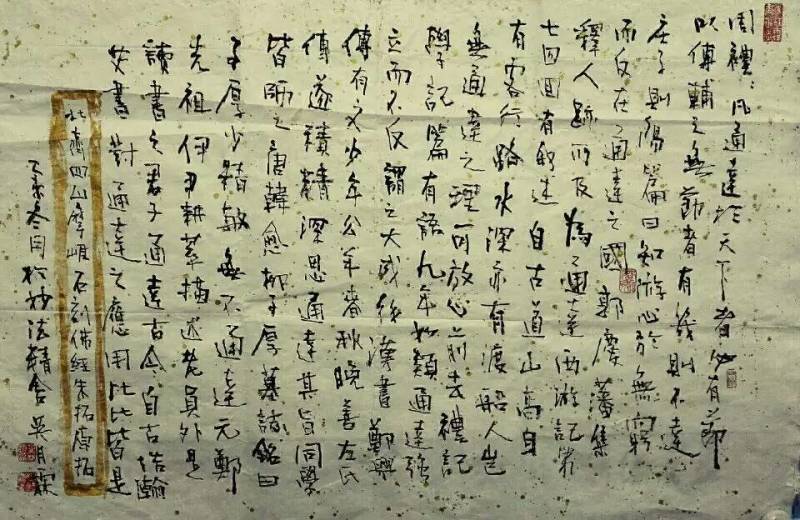 周禮：凡通達於天下者必有節
以傳輔之無節者有幾則不達
庄子則陽篇曰知游心於無窮
而反在通達之國郭慶藩集
釋人跡所及為通達西游記第
七四回有的達自古道山高自
有客行路水深亦有渡船人豈
無通達之理可放心前去禮記
學記篇有語九年知類通達強
立而不反謂之大成後漢書鄭興
傳有文少年公羊春秋晚善左氏
傳遂積精深思通達其旨同學
皆師之唐韓愈柳子厚墓誌銘曰
子厚少精敏無不通達元鄭
光祖伊尹耕莘描述老員外是
讀書之君子通達古今自古浩瀚
文書對通達之應用比比皆是
北齊四山摩崖石刻佛經朱拓原拓
冬月於妙法精舍吳月霖